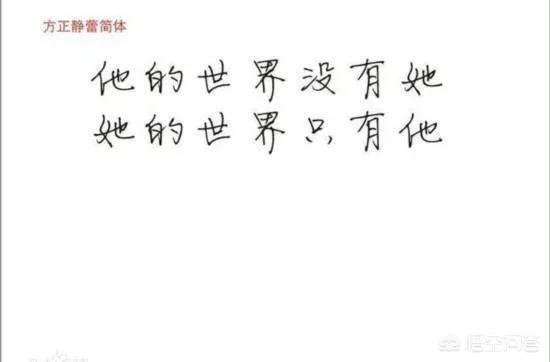 方正静蕾简体
他的世界没有她
她的世界只有他
悟空问答